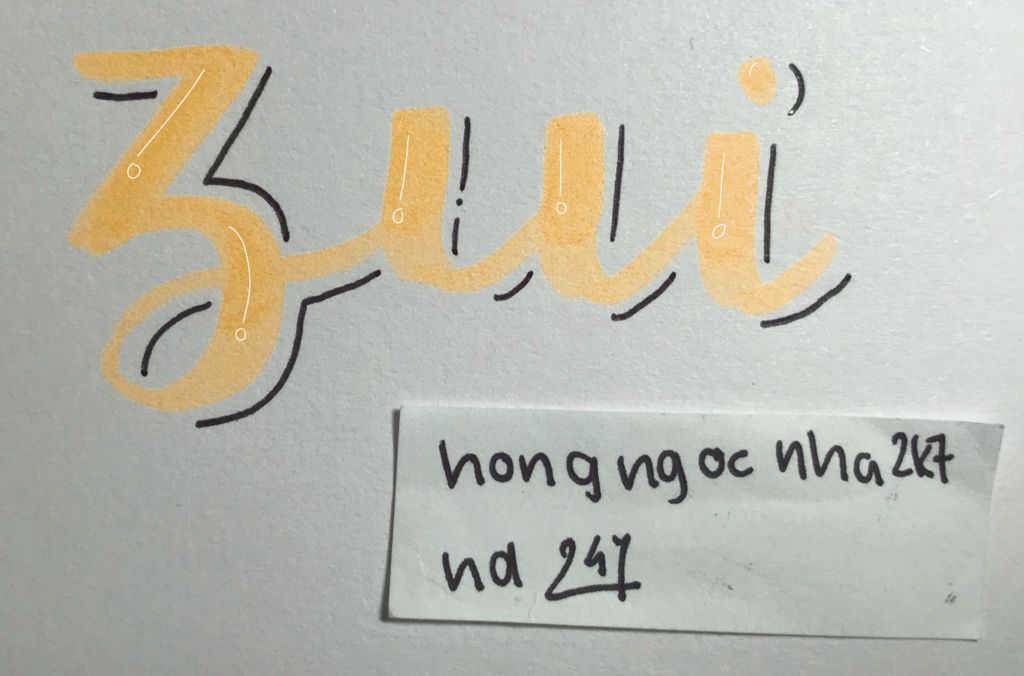 Zui
hongngocnha2k7
nd 247